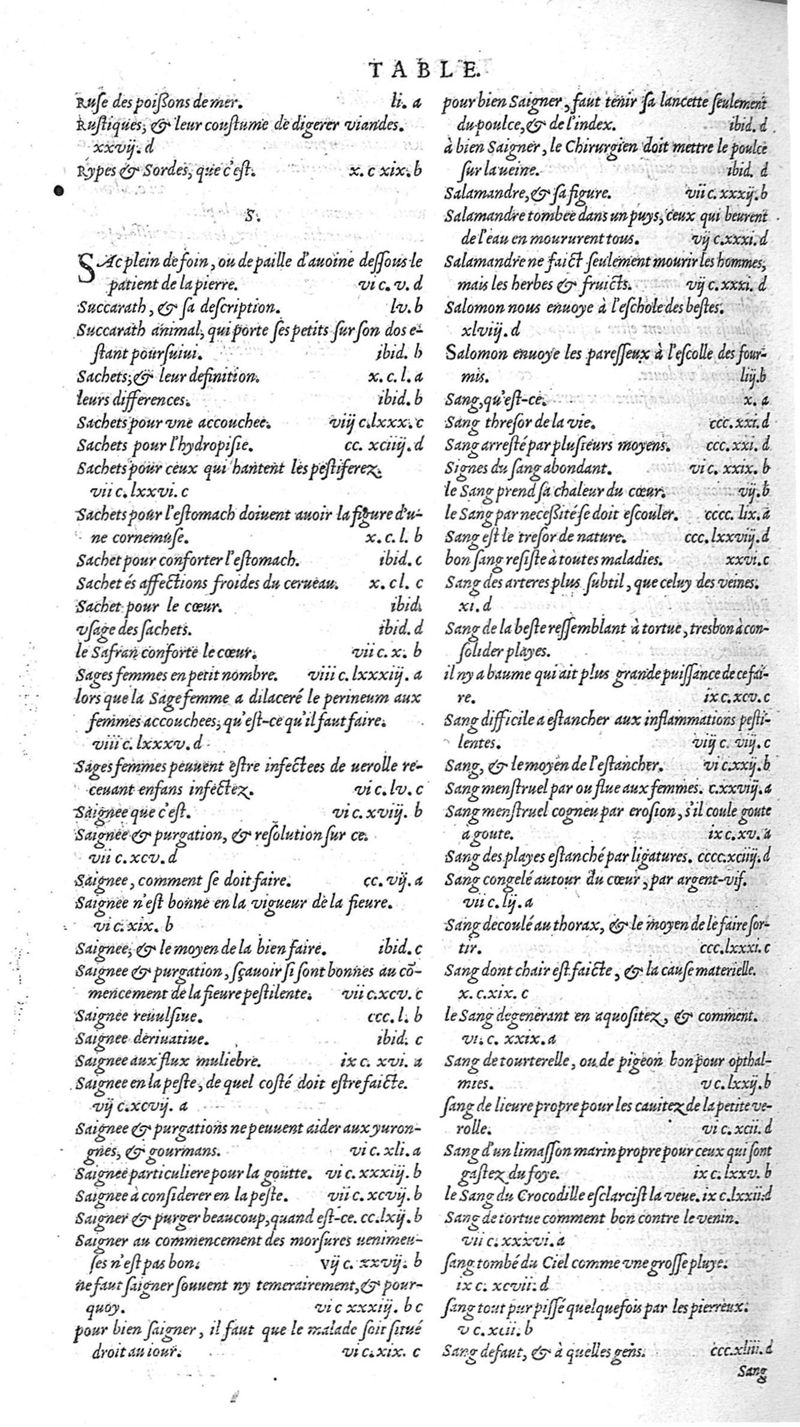 TABLE.
Ruſe des poiſſons de mer. li. a
Ruſtiques, & leur couſtume de digerer viandes.
xxvij. d
Rypes & Sordes, que c'eſt. x. c xix. b
S.
SAc plein de foin, ou de paille d'auoine deſſous le
patient de la pierre. vi c. v. d
Succarath, & ſa deſcription. lv. b
Succarath animal, qui porte ſes petits ſur ſon dos e-
ſtant pourſuiui. ibid. b
Sachets, & leur definition. x. c. l. a
leurs differences. ibid. b
Sachets pour vne accouchee. viij c. lxxx. c
Sachets pour l'hydropiſie. cc. xciiij. d
Sachets pour ceux qui hantent les peſtiferez.
vii c. lxxvi. c
Sachets pour l'eſtomach doiuent auoir la figure d'u-
ne cornemuſe. x. c. l. b
Sachet pour conforter l'eſtomach. ibid. c
Sachet és affections froides du cerueau. x. cl. c
Sachet pour le cœur. ibid.
vſage des ſachets. ibid. d
le Safran conforte le cœur. vii c. x. b
Sages femmes en petit nombre. viii c. lxxxiij. a
lors que la Sagefemme a dilaceré le perineum aux
femmes accouchees, qu'eſt-ce qu'il faut faire.
viii c. lxxxv. d
Sages femmes peuuent eſtre infectees de uerolle re-
ceuant enfans infectez. vi c. lv. c
Saignee que c'eſt. vi c. xviij. b
Saignee & purgation, & reſolution ſur ce.
vii c. xcv. d
Saignee, comment ſe doit faire. cc. vij. a
Saignee n'eſt bonne en la vigueur de la fieure.
vi c. xix. b
Saignee, & le moyen de la bien faire. ibid. c
Saignee & purgation, ſçauoir ſi ſont bonnes au cō-
mencement de la fieure peſtilente. vii c. xcv. c
Saignee reuulſiue. ccc. l. b
Saignee deriuatiue. ibid. c
Saignee aux flux muliebre. ix c. xvi. a
Saignee en la peſte, de quel coſté doit eſtre faicte.
vij c. xcvij. a
Saignee & purgations ne peuuent aider aux yuron-
gnes, & gourmans. vi c. xli. a
Saignee particuliere pour la goutte. vi c. xxxiij. b
Saignee à conſiderer en la peſte. vii c. xcvij. b
Saigner & purger beaucoup, quand eſt-ce. cc. lxij. b
Saigner au commencement des morſures uenimeu-
ſes n'eſt pas bon. vij c. xxvij. b
ne faut ſaigner ſouuent ny temerairement, & pour-
quoy. vi c xxxiij. b c
pour bien ſaigner, il faut que le malade ſoit ſitué
droit au iour. vi c. xix. c
pour bien Saigner, faut tenir ſa lancette ſeulement
du poulce, & de l'index. ibid. d
à bien Saigner, le Chirurgien doit mettre le poulce
ſur la ueine. ibid. d
Salamandre, & ſa figure. vii c. xxxij. b
Salamandre tombee dans un puys, ceux qui beurent
de l'eau en moururent tous. vij c. xxxi. d
Salamandre ne faict ſeulement mourir les hommes,
mais les herbes & fruicts. vij c. xxxi. d
Salomon nous enuoye à l'eſchole des beſtes.
xlviij. d
Salomon enuoye les pareſſeux à l'eſcolle des four-
mis. liij. b
Sang, qu'eſt-ce. x. a
Sang threſor de la vie. ccc. xxi. d
Sang arreſté par pluſieurs moyens. ccc. xxi. d
Signes du ſang abondant. vi c. xxix. b
le Sang prend ſa chaleur du cœur. vij. b
le Sang par neceſſité ſe doit eſcouler. cccc. lix. a
Sang eſt le treſor de nature. ccc. lxxviij. d
bon ſang reſiſte à toutes maladies. xxvi. c
Sang des arteres plus ſubtil, que celuy des veines.
xi. d
Sang de la beſte reſſemblant à tortue, tresbon à con-
ſolider playes.
il ny a baume qui ait plus grande puiſſance de ce fai-
re. ix c. xcv. c
Sang difficile a eſtancher aux inflammations peſti-
lentes. viij c. viij. c
Sang, & le moyen de l'eſtancher. vi c. xxij. b
Sang menſtruel par ou flue aux femmes. c. xxviij. a
Sang menſtruel cogneu par eroſion, s'il coule goute
a goute. ix c. xv. a
Sang des playes eſtanché par ligatures. cccc. xciiij. d
Sang congelé autour du cœur, par argent-vif.
vii c. lij. a
Sang decoulé au thorax, & le moyen de le faire ſor-
tir. ccc. lxxxi. c
Sang dont chair eſt faicte, & la cauſe materielle.
x. c. xix. c
le Sang degenerant en aquoſitez, & comment.
vi. c. xxix. a
Sang de tourterelle, ou de pigeon bon pour opthal-
mies. v c. lxxij. b
ſang de lieure propre pour les cauitez de la petite ve-
rolle. vi c. xcii. d
Sang d'un limaſſon marin propre pour ceux qui ſont
gaſtez du foye. ix c. lxxv. b
le Sang du Crocodille eſclarciſt la veue. ix c. lxxii. d
Sang de tortue comment bon contre le venin.
vii c. xxxvi. a
ſang tombé du Ciel comme vne groſſe pluye.
ix c. xcvii. d
ſang tout pur piſſé quelquefois par les pierreux.
v c. xcii. b
Sang defaut, & à quelles gens. ccc. xliii. d
Sang